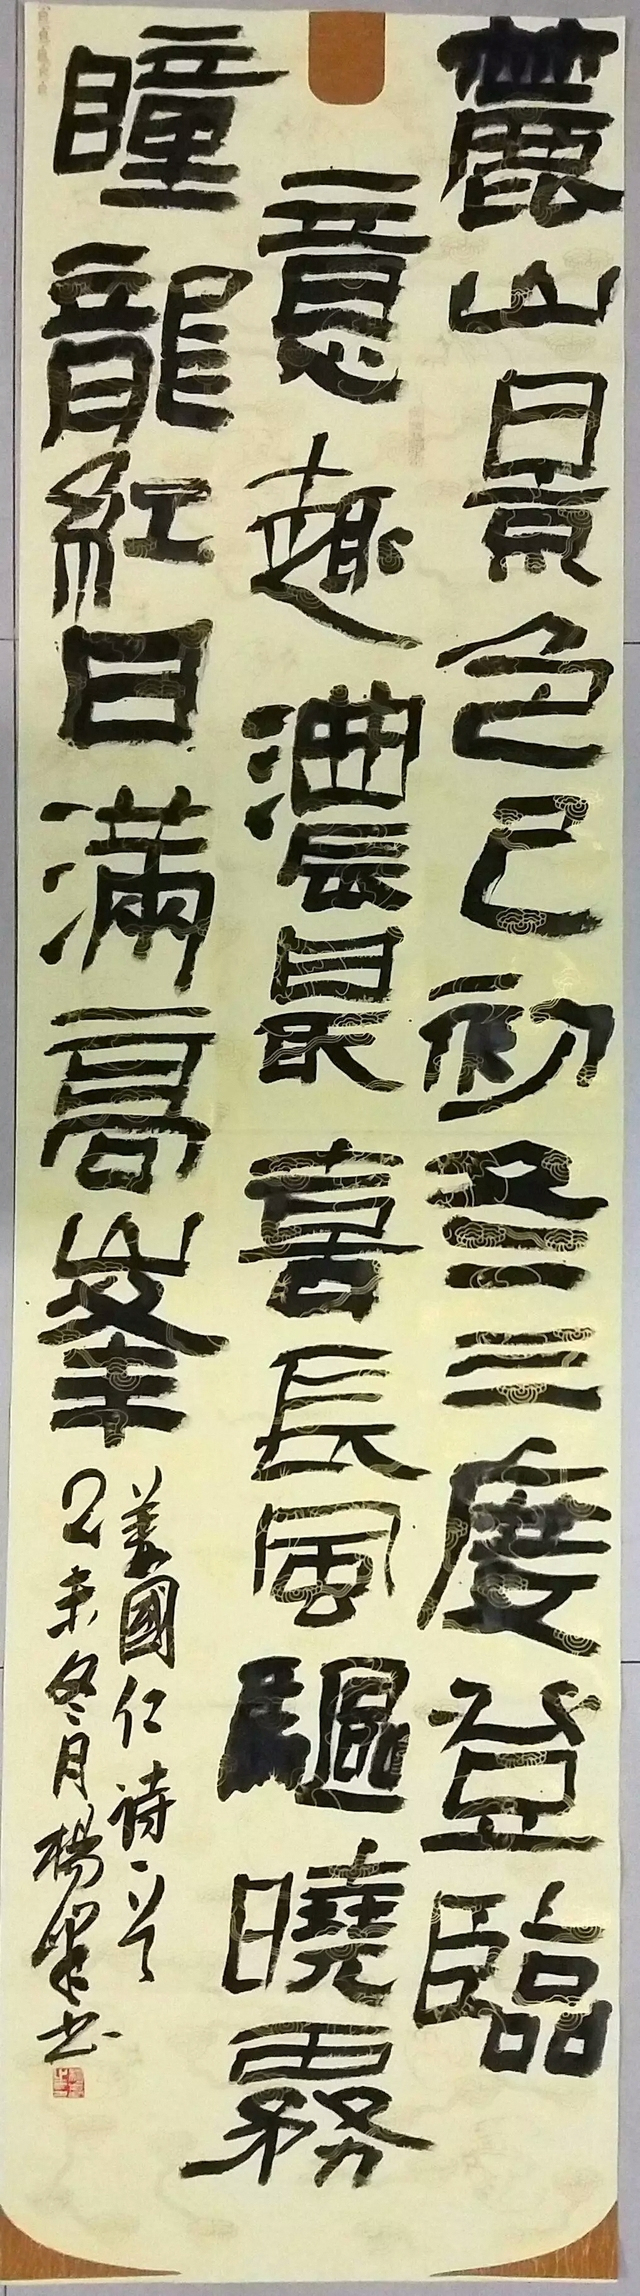 麓山景色已初冬三度登臨
意趣濃最喜長風驅曉霧
瞳龍紅日滿高峯
姜國仁诗一首
乙未冬月楊书